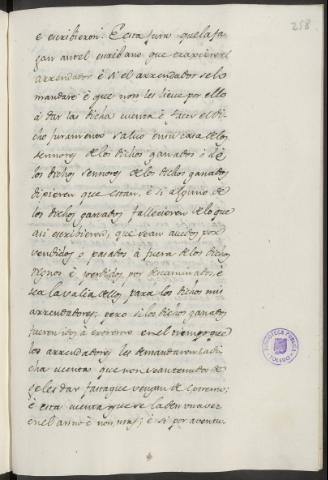 258
è escribieron: E esta jura que la fa-
gan ant el escribano que traxiere el
arrendador è si el arrendador se lo
mandare è que non les lieve por ello
à dar la dicha cuenta è facer el di-
cho juramento salvo en su casa de los
sennores de los dichos ganados ò dè
los dichos sennores de los dichos ganados
dixieren que estan, è si alguno de
los dichos ganados fallecieren de lo que
asi escribieren, que sean avidos por
vendidos ò pasados à fuera de los dichos
Regnos è perdidos, por descaminados, è
sea la valia dellos para los dichos mis
arrendatores; pero si los dichos ganados
fueren idos à extremo en el tiempo que
los arrendatores les demandaren la di-
cha cuenta que non sean tenudos de
ge les dar fasta que vengan de extremo;
è esta cuenta que se la den una vez
en el anno è non mas; è si por aventu-
BIBLIOTECA PUBLICA
TOLEDO